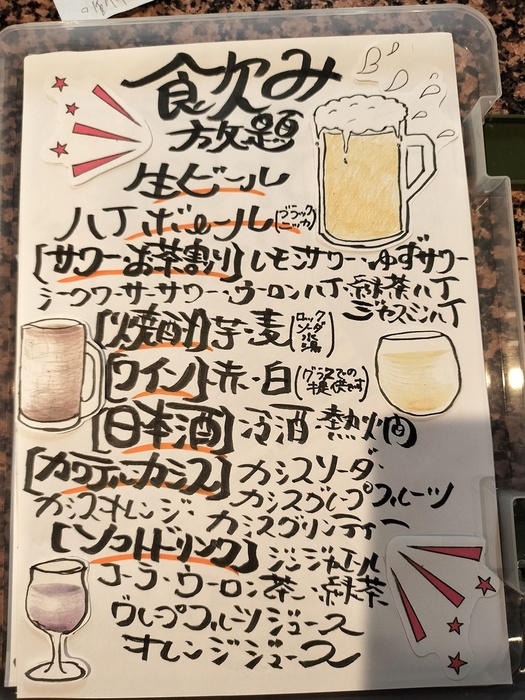 飲み
放題
生ビール
ハイボール(ブラックニッカ)
[サワー・お茶割り]レモンサワー・ゆずサワー
シークワーサーサワー・ウーロンハイ・緑茶ハイ
ジャスミンハイ
[焼酎]芋・麦(ロック ソーダ 水 湯)
[ワイン]赤・白(グラスでの提供です)
[日本酒]冷酒・熱燗
[カクテル カシス]カシスソーダ・
カシスオレンジ・カシスグレープフルーツ
カシスグリンティー
[ソフトドリンク]ジンジャエール
コーラ・ウーロン茶・緑茶
グレープフルーツジュース
オレンジジュース